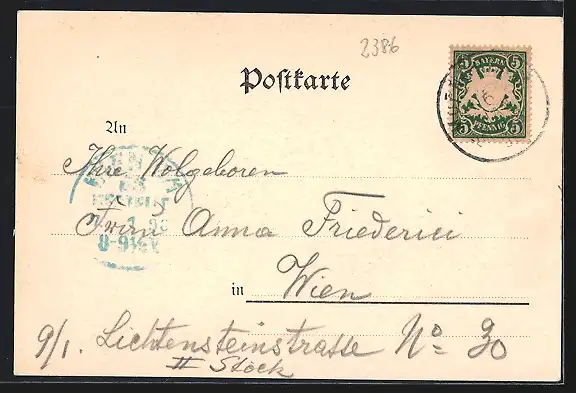 2386
Postkarte
5 BAYERN 5
5 PFENNIG 5
An
Ihre Wolgeboren
Frau Anna Friederici
in Wien
9/1. Lichtensteinstrasse No 30
II Stock